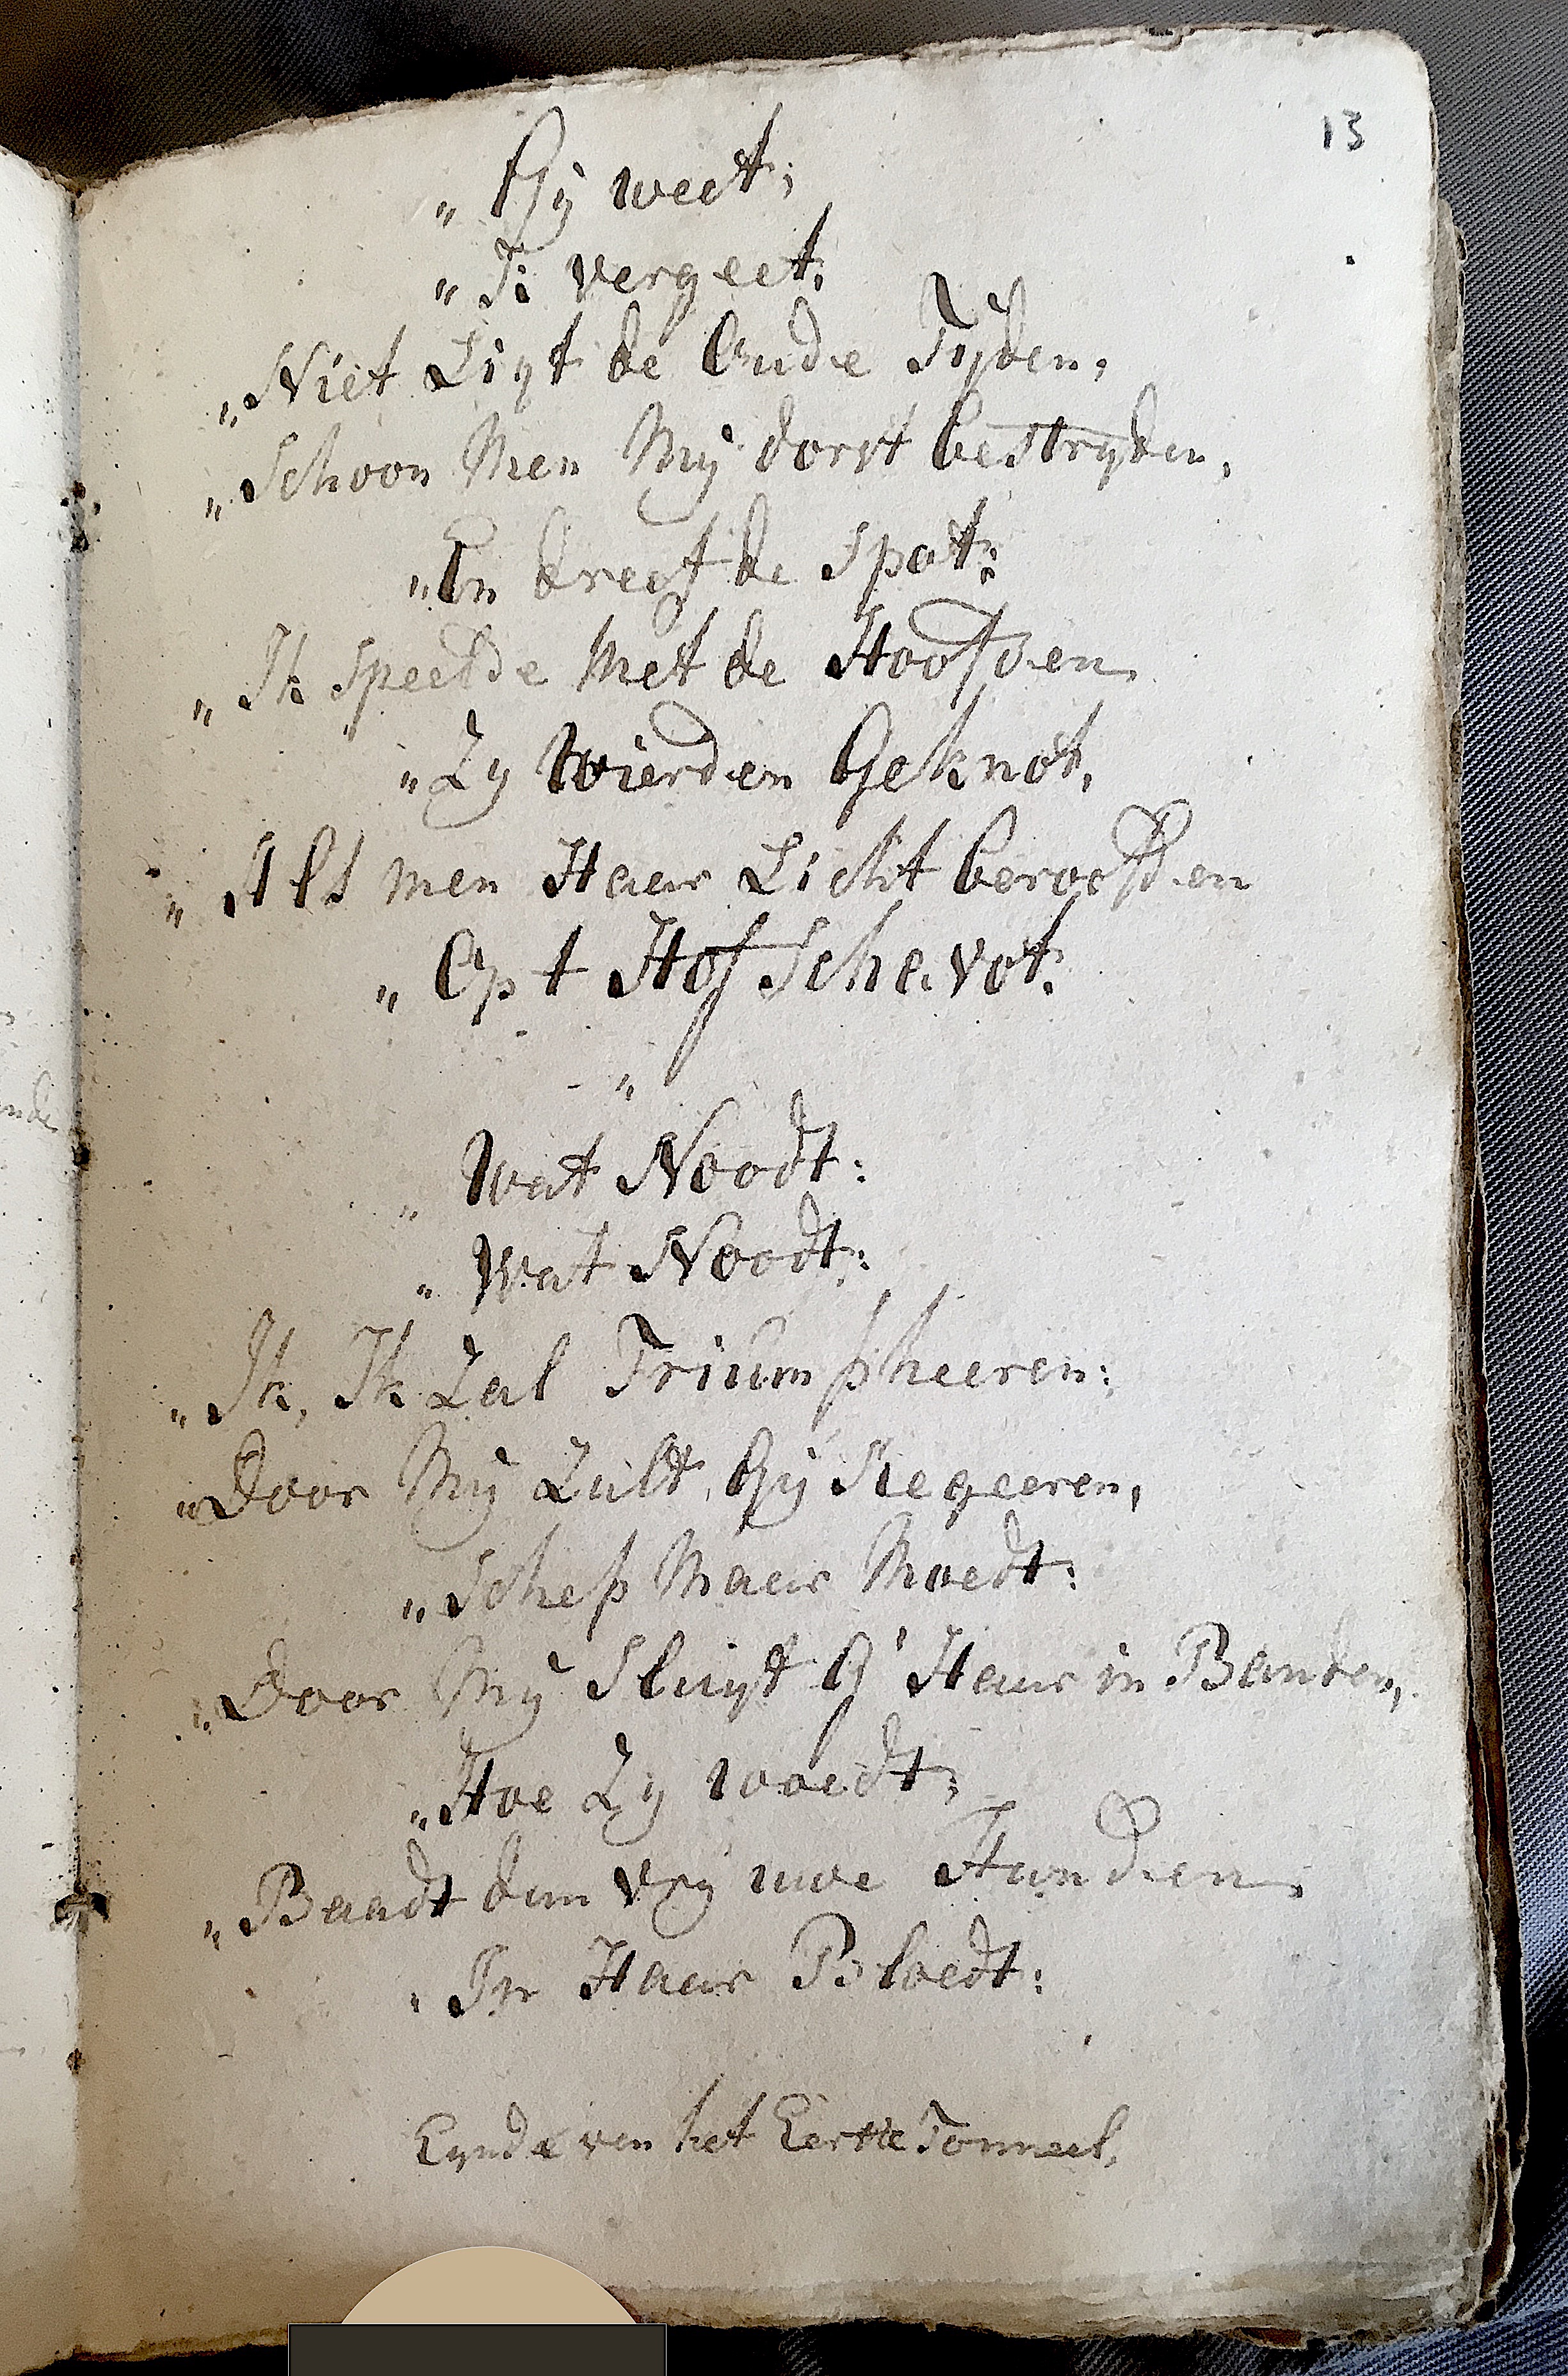 13
„ Gij weet;
„ Ik vergeet;
„ Niet Ligt de Oude Tijden,
„ Schoon Men Mij dorst bestryden,
„ En dreef de Spot:
„ Ik Speelde Met de Hoofden
„ Zy Wierden Geknot,
„ Als men Haar Licht beroofden
„ Op t Hof Schavot:
„
„ Wat Noodt:
„ Wat Noodt:
„ Ik, Ik Zal Triumpheeren:
„ Door Mij Zult Gij Regeeren,
„ Schep Maar Moedt:
„ Door Mij Sluijt G' Haar in Banden,
„ Hoe Zy woedt;
„ Baadt dan vry uwe Handen
„ In Haar Bloedt:
Eynde van het Eerste Tonneel,